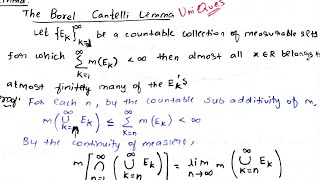 The Borel Cantelli Lemma UniQues
Let {E_k}_{k=1}^∞ be a countable collection of measurable sets
for which ∑_{k=1}^∞ m(E_k) < ∞ then almost all x∈R belongs to
atmost finitely many of the E_k's
Proof For each n, by the countable sub additivity of m,
m(⋃_{k=n}^∞ E_k) ≤ ∑_{k=n}^∞ m(E_k) < ∞
By the continuity of measure,
m[⋂_{n=1}^∞ (⋃_{k=n}^∞ E_k)] = lim_{n→∞} m(⋃_{k=n}^∞ E_k)